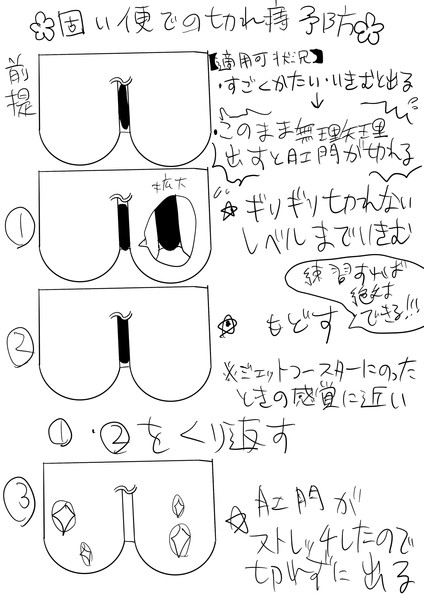 固い便での切れ痔予防
前提
【適用可状況】
・すごくかたい・いきむと出る
↓
・このまま無理矢理
出すと肛門が切れる
①
拡大
☆ギリギリ切れない
レベルまでいきむ
練習すれば
絶対は
できる!!!
②
☆もどす
※ジェットコースターにのった
ときの感覚に近い
①・②をくり返す
③
☆肛門が
ストレッチしたので
切れずに出る